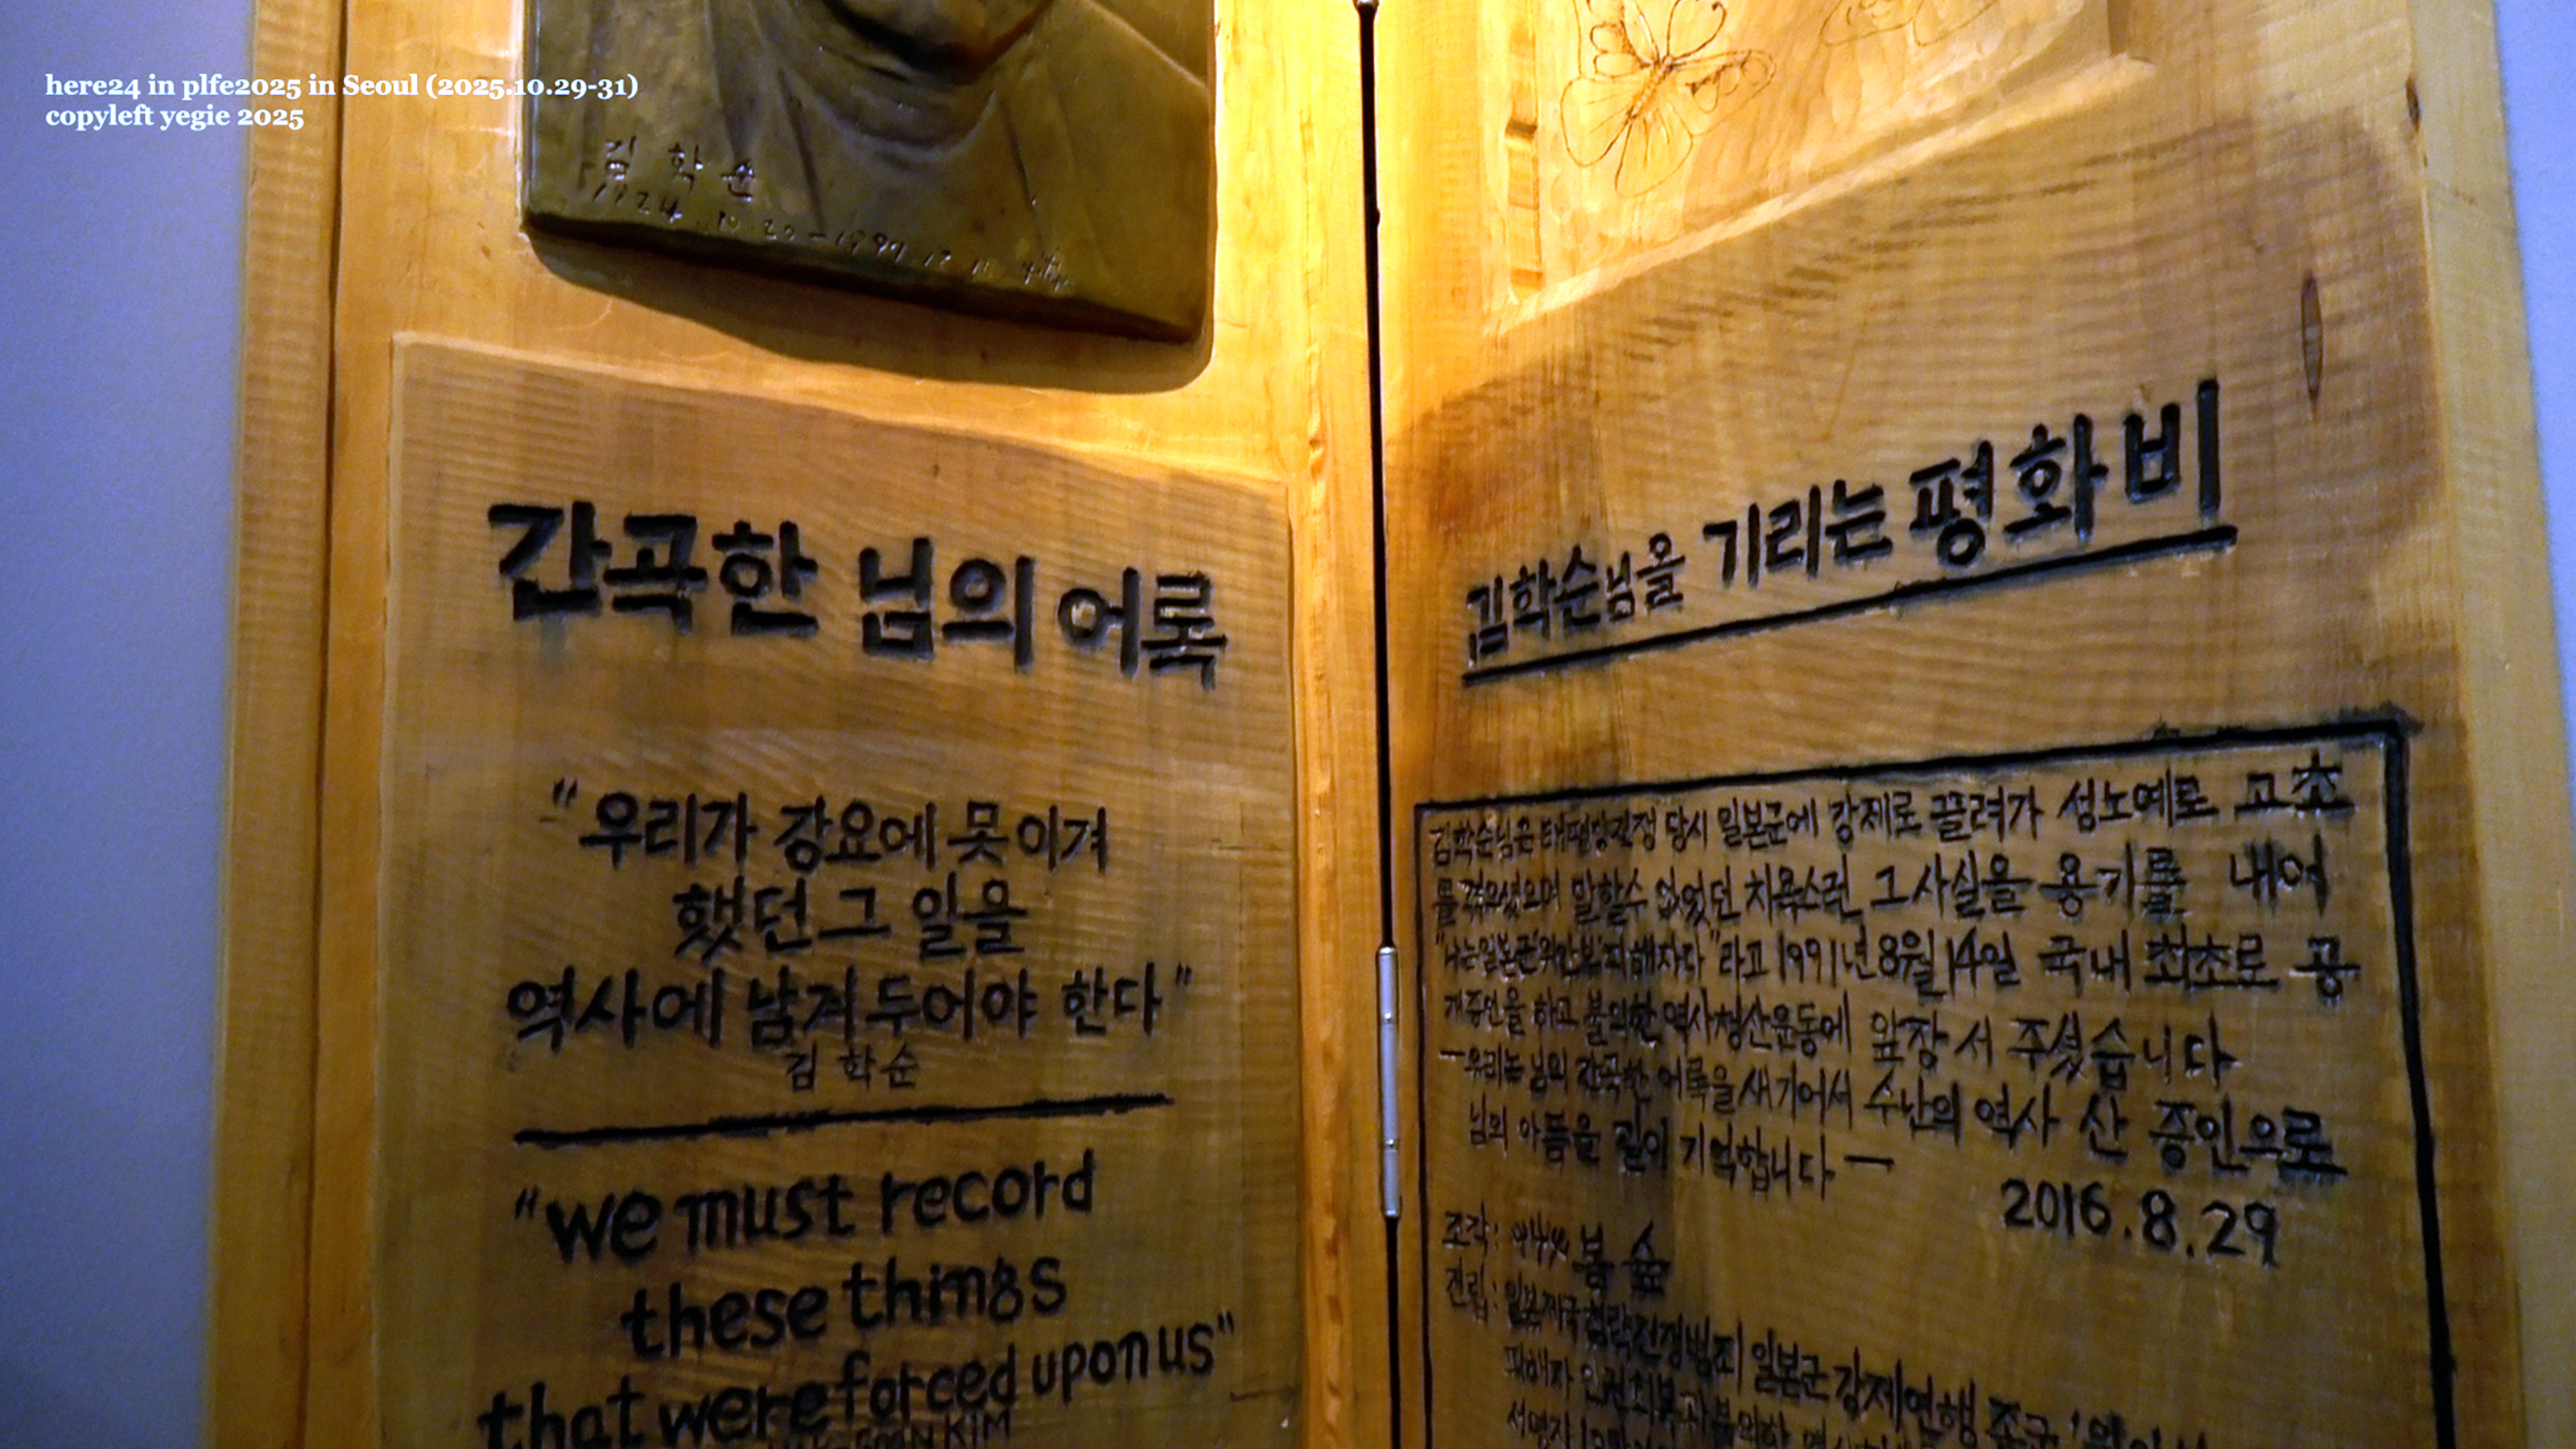 here24 in plfe2025 in Seoul (2025.10.29-31)
copyleft yegie 2025
김학순
1924.10.20-1997.12.
간곡한 님의 어록
"우리가 강요에 못 이겨
했던 그 일을
역사에 남겨 두어야 한다"
김학순
"we must record
these things
that were forced upon us"
KIM
김학순님을 기리는 평화비
김학순님은 태평양전쟁 당시 일본군에 강제로 끌려가 성노예로 고초
를 겪으셨으며 말할수 없었던 치욕스런 그 사실을 용기를 내어
"나는 일본군'위안부'피해자다"라고 1991년 8월 14일 국내 최초로 공
개증언을 하고 불의한 역사청산운동에 앞장 서 주셨습니다
-우리는 님의 간곡한 어록을 새기어서 수난의 역사 산 증인으로
님의 아픔을 깊이 기억합니다-
2016.8.29
조각: 봄 숲
건립: 일본제국침략전쟁범죄 일본군강제연행 종군
피해자 인권회복과 불의한
서명자